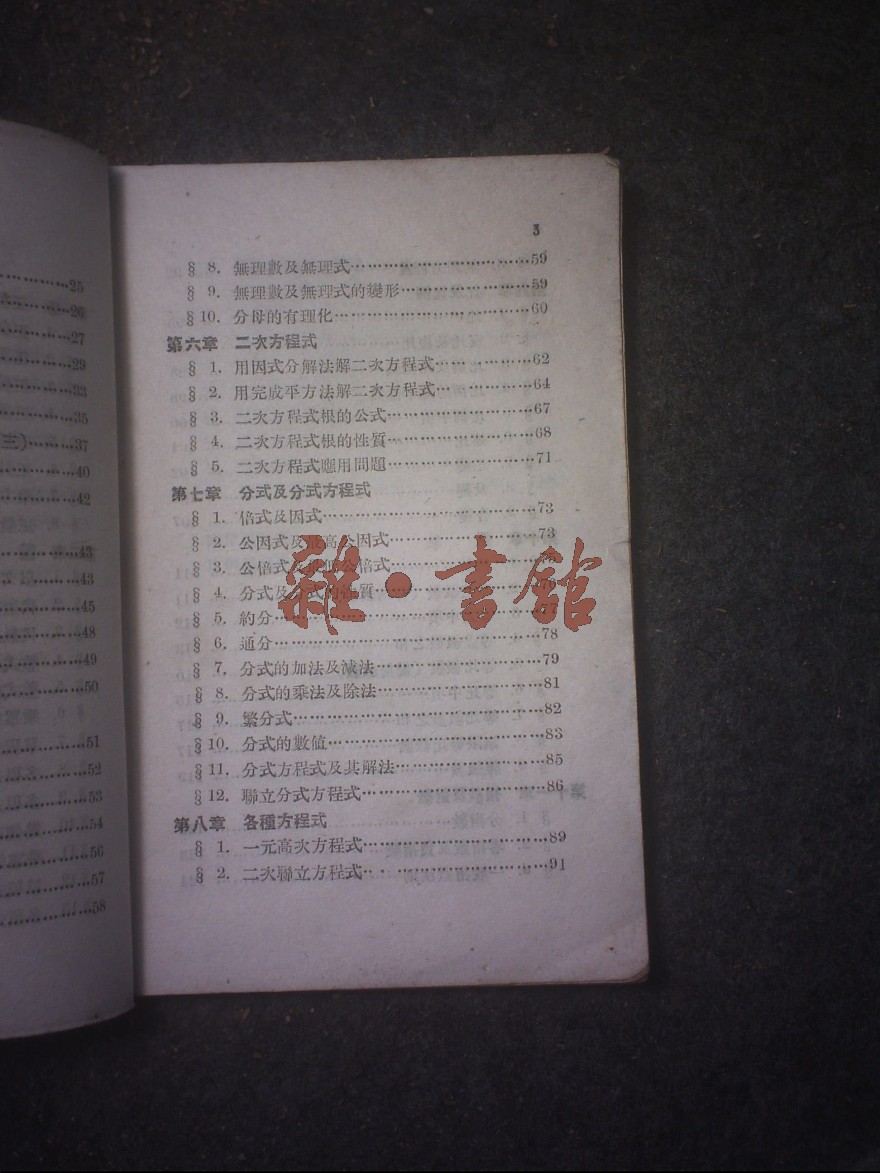 25
26
27
29
33
35
(三)……37
40
42
43
43
45
48
49
50
51
52
53
54
56
57
58
3
§ 8. 無理數及無理式……59
§ 9. 無理數及無理式的變形……59
§10. 分母的有理化……60
第六章 二次方程式
§ 1. 用因式分解法解二次方程式……62
§ 2. 用完成平方法解二次方程式……64
§ 3. 二次方程式根的公式……67
§ 4. 二次方程式根的性質……68
§ 5. 二次方程式應用問題……71
第七章 分式及分式方程式
§ 1. 倍式及因式……73
§ 2. 公因式及最高公因式……73
§ 3. 公倍式及最低公倍式……
§ 4. 分式及分式的性質……
§ 5. 約分……77
§ 6. 通分……78
§ 7. 分式的加法及減法……79
§ 8. 分式的乘法及除法……81
§ 9. 繁分式……82
§10. 分式的數值……83
§11. 分式方程式及其解法……85
§12. 聯立分式方程式……86
第八章 各種方程式
§ 1. 一元高次方程式……89
§ 2. 二次聯立方程式……91
雜·書館